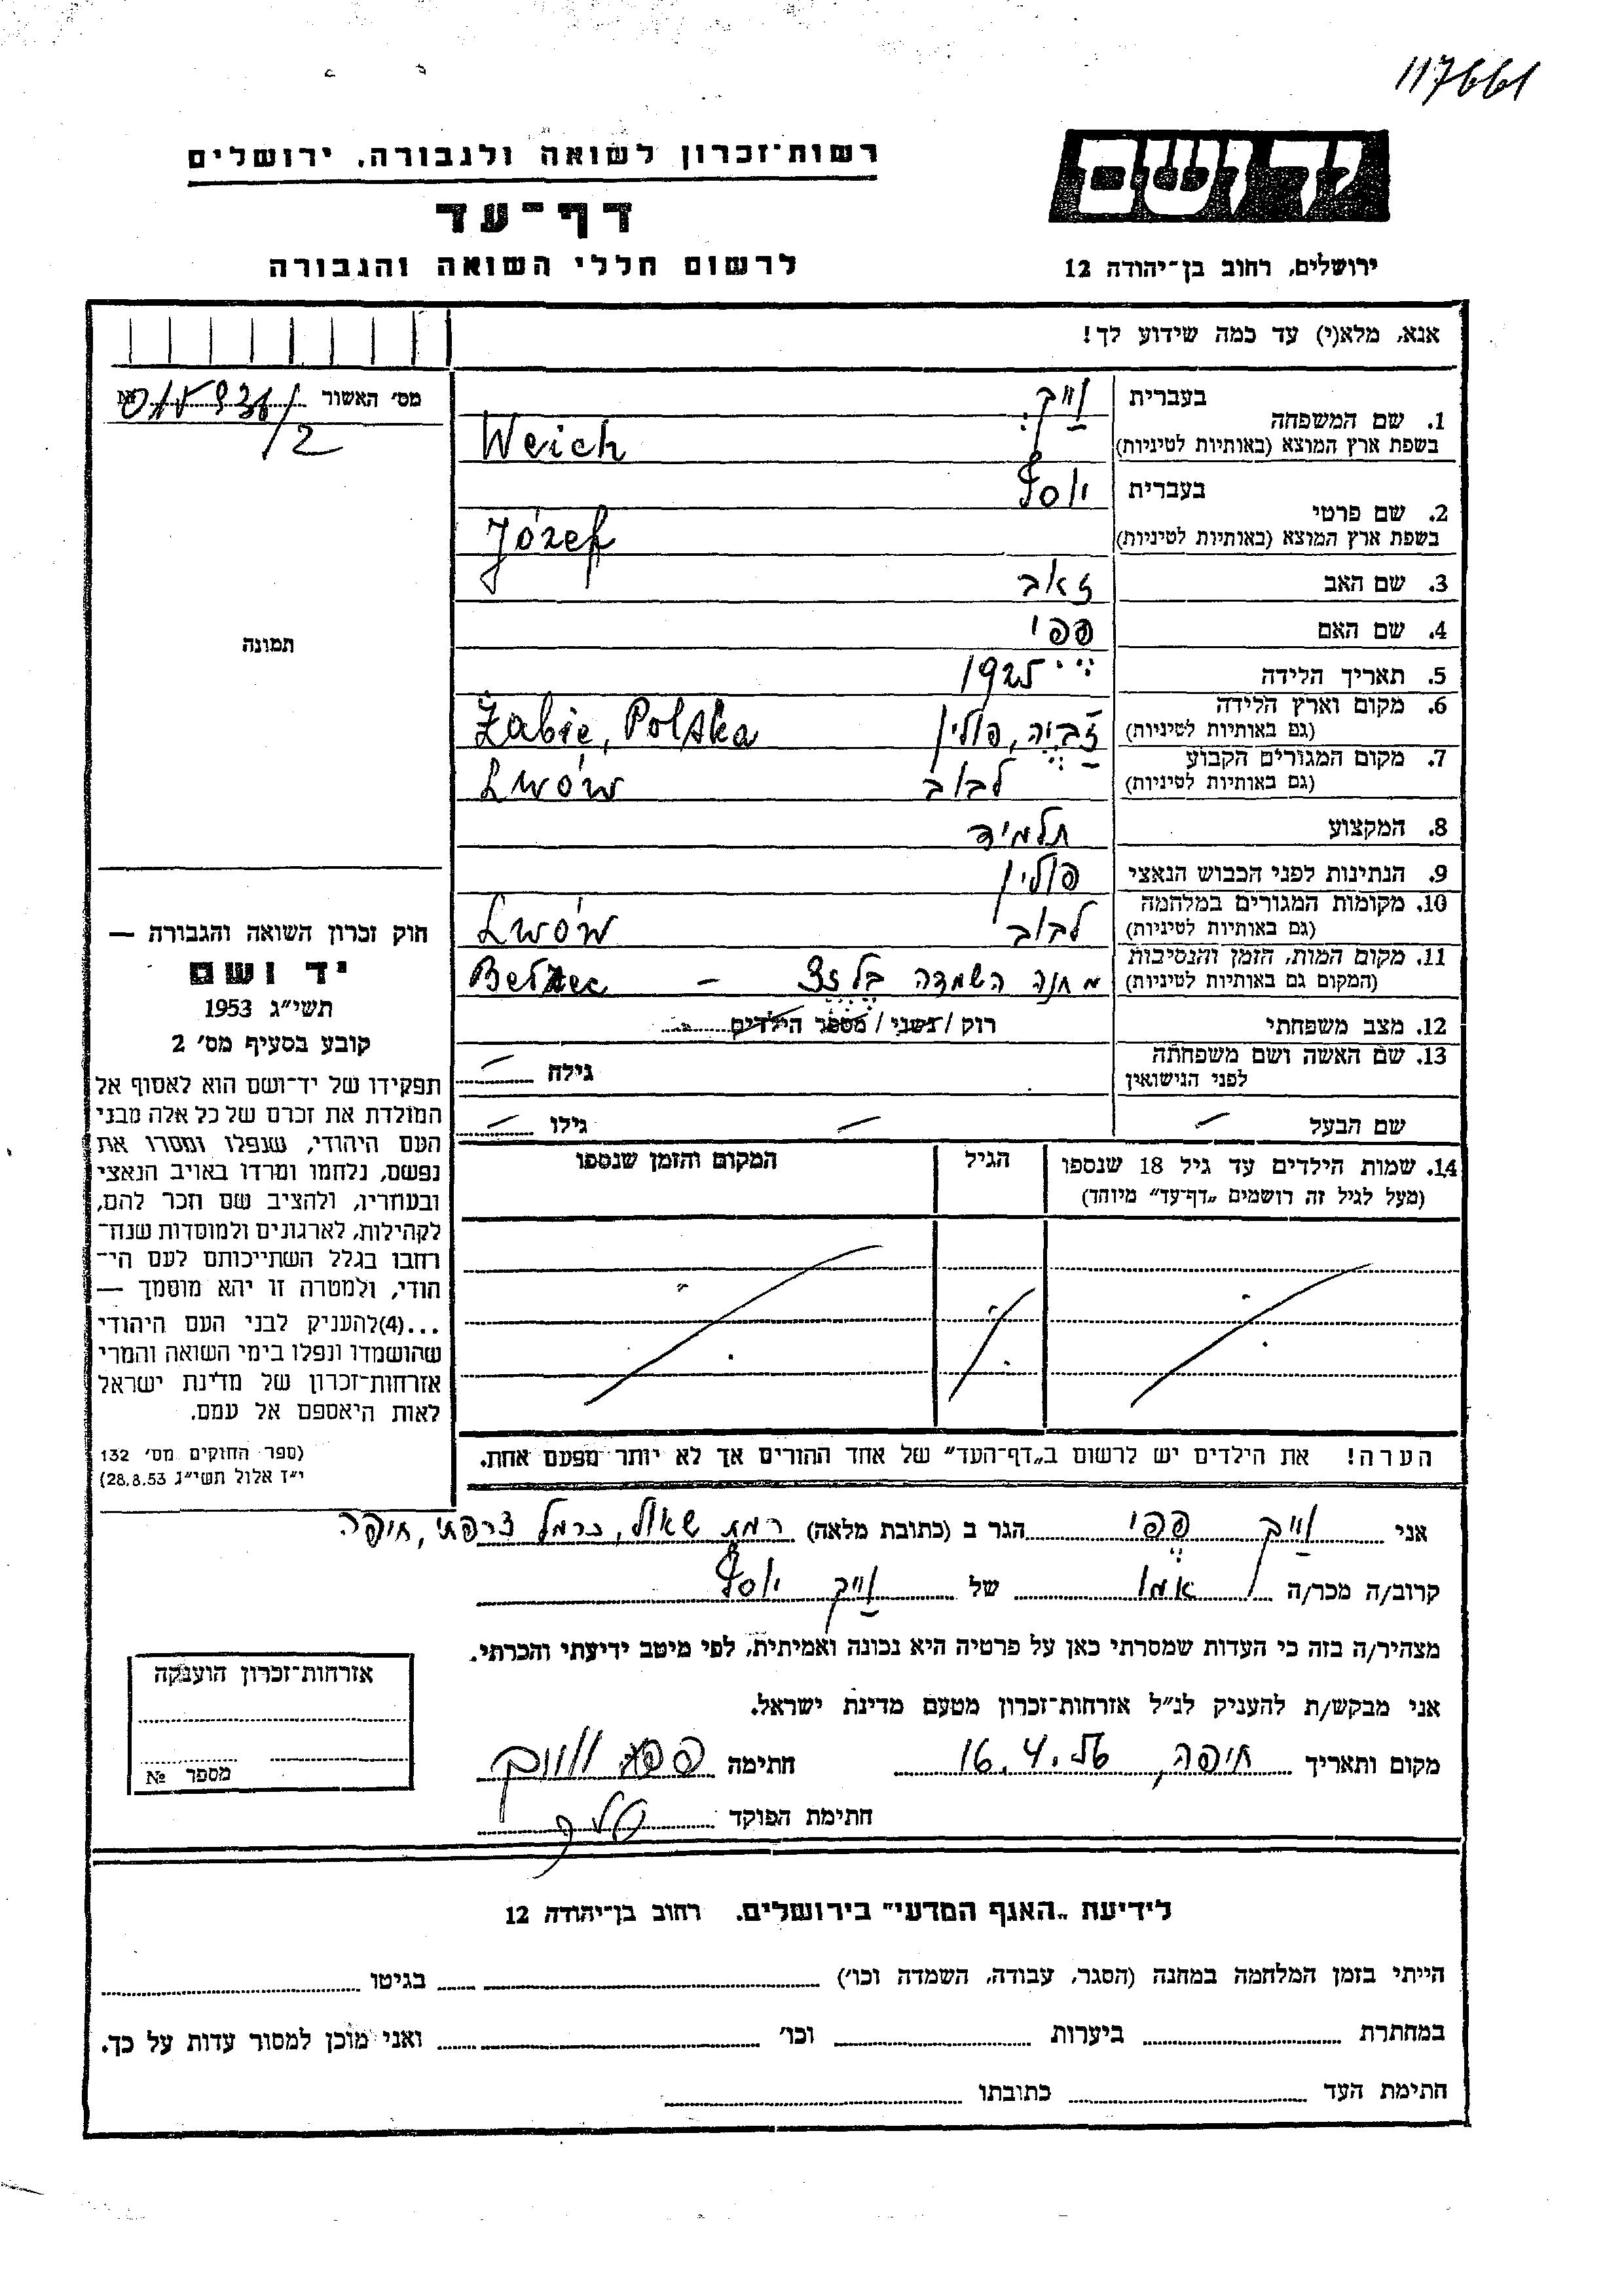 117661
יד ושם
רשות־זכרון לשואה ולגבורה, ירושלים
דף־עד
לרשום חללי השואה והגבורה
ירושלים, רחוב בן־יהודה 12
אנא, מלא(י) עד כמה שידוע לך!
מס׳ האשור №
1. שם המשפחה בעברית וַייך
בשפת ארץ המוצא (באותיות לטיניות) Weich
2. שם פרטי בעברית יוסף
בשפת ארץ המוצא (באותיות לטיניות) Józef
3. שם האב זאב
4. שם האם פפי
5. תאריך הלידה 1925
6. מקום וארץ הלידה
(גם באותיות לטיניות) זַבְּיֶה, פולין Żabie, Polska
7. מקום המגורים הקבוע
(גם באותיות לטיניות) לבוב Lwów
8. המקצוע תלמיד
9. הנתינות לפני הכבוש הנאצי פולין
10. מקומות המגורים במלחמה
(גם באותיות לטיניות) לבוב Lwów
11. מקום המות, הזמן והנסיבות
(המקום גם באותיות לטיניות) מחנה השמדה בלזץ – Bełżec
12. מצב משפחתי רוק / נשוי / מספר הילדים
13. שם האשה ושם משפחתה
לפני הנישואין גילה
שם הבעל גילו
14. שמות הילדים עד גיל 18 שנספו הגיל המקום והזמן שנספו
(מעל לגיל זה רושמים „דף־עד״ מיוחד)
הערה! את הילדים יש לרשום ב„דף־העד״ של אחד ההורים אך לא יותר מפעם אחת.
תמונה
חוק זכרון השואה והגבורה —
יד ושם
תשי״ג 1953
קובע בסעיף מס׳ 2
תפקידו של יד־ושם הוא לאסוף אל
המולדת את זכרם של כל אלה מבני
העם היהודי, שנפלו ומסרו את
נפשם, נלחמו ומרדו באויב הנאצי
ובעוזריו, ולהציב שם וזכר להם,
לקהילות, לארגונים ולמוסדות שנח־
רחבו בגלל השתייכותם לעם הי־
הודי, ולמטרה זו יהא מוסמך —
...(4)להעניק לבני העם היהודי
שהושמדו ונפלו בימי השואה והמרי
אזרחות־זכרון של מדינת ישראל
לאות היאספם אל עמם.
(ספר החוקים מס׳ 132
י״ז אלול תשי״ג 28.8.53)
אני וַייך פפי הגר ב (כתובת מלאה) רמת שאול, כרמל צרפתי, חיפה
קרוב/ה מכר/ה אמו של וַייך יוסף
מצהיר/ה בזה כי העדות שמסרתי כאן על פרטיה היא נכונה ואמיתית, לפי מיטב ידיעתי והכרתי.
אני מבקש/ת להעניק לנ״ל אזרחות־זכרון מטעם מדינת ישראל.
מקום ותאריך חיפה, 16.4.56 חתימה
חתימת הפוקד
אזרחות־זכרון הוענקה
מספר №
לידיעת „האגף המדעי״ בירושלים. רחוב בן־יהודה 12
הייתי בזמן המלחמה במחנה (הסגר, עבודה, השמדה וכו׳) בגיטו
במחתרת ביערות וכו׳ ואני מוכן למסור עדות על כך.
חתימת העד כתובתו